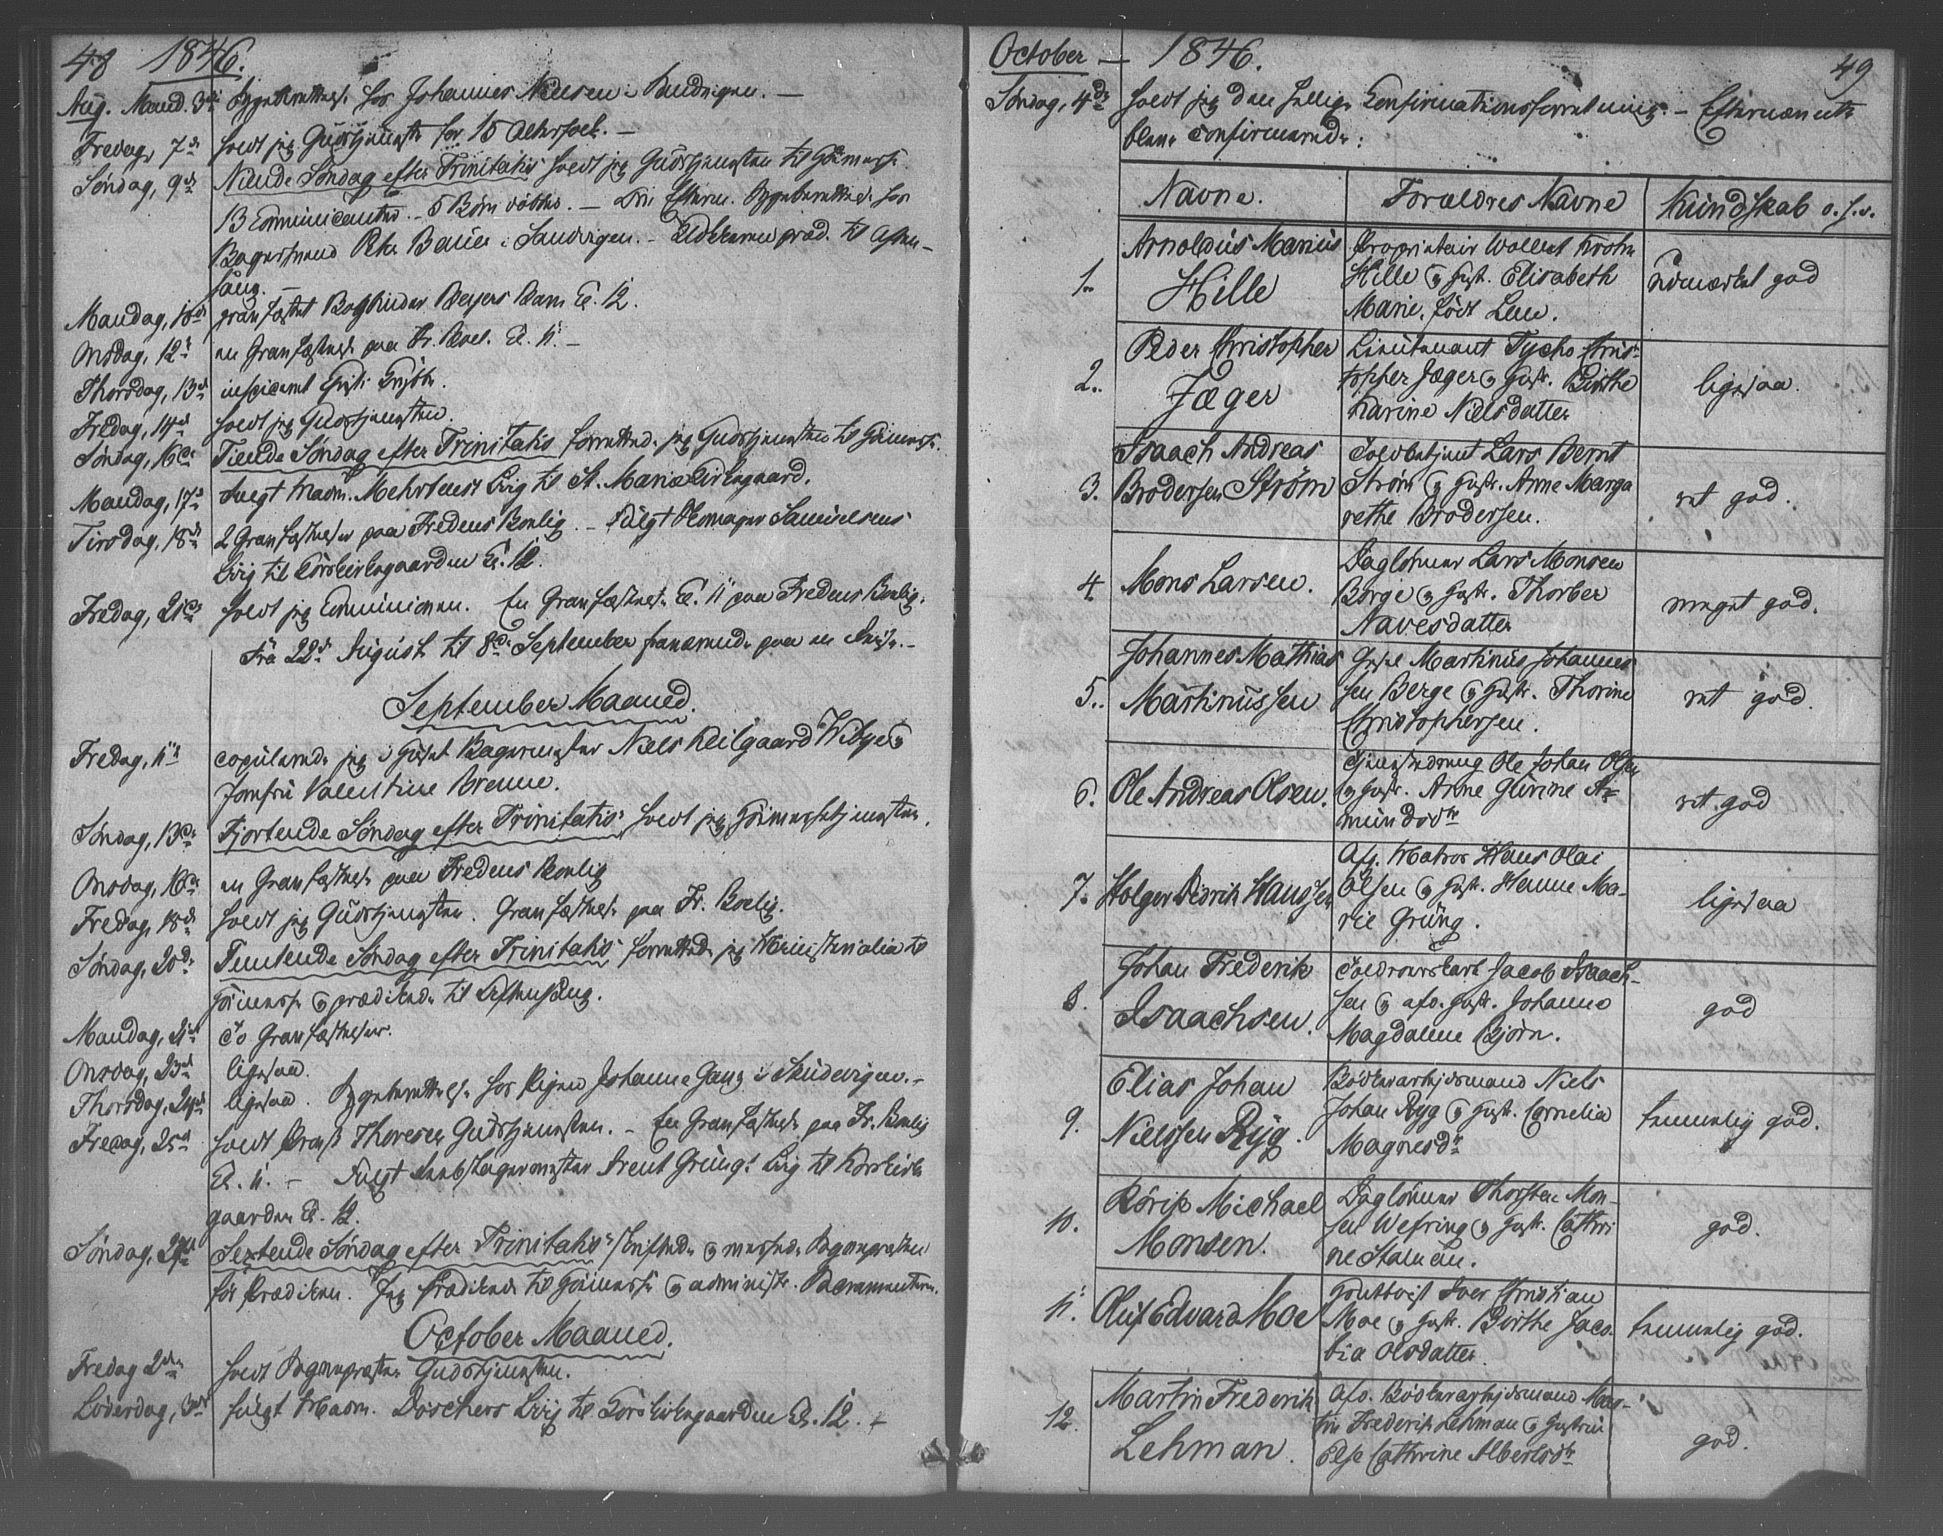 48 1846.
Aug. Mand. 3die Sygeberettelse hos Johannes Nielsen i Sandvigen. —
Fredag, 7de holdt jeg Gudstjeneste for 15 Altersfolk. —
Søndag, 9de Niende Søndag efter Trinitatis holdt jeg Gudstjenesten til Høimesse.
13 Communicantes. — 5 Børn døbtes. — Om Efterm. Sygeberettede hos
Bagersvend Peter Bauer i Sandvigen. — præd. til Aften-
sang. —
Mandag, 10de Bogbinder Beyers Barn Kl. 12.
Onsdag, 12te en Gravfæstelse paa Fr. Boel. Kl. 11. —
Thorsdag, 13de
Fredag, 14de holdt jeg Gudstjenesten.
Søndag, 16de Tiende Søndag efter Trinitatis forrettede jeg Gudstjenesten til Høimesse.
Mandag, 17de fulgt Madm. Mehrtens Liig til St. Mariæ Kirkegaard.
Tirsdag, 18de 2 Gravfæstelser paa Fredens Boelig. — Fulgt Samuelsens
Liig til Korskirkegaarden Kl. 12.
Fredag, 21de holdt jeg Communionen. En Gravfæstelse Kl. 11 paa Fredens Boelig.
Fra 22de August til 8de September fraværende paa en Reise. —
September Maaned.
Fredag, 11te copulerede jeg i Huset Bagermester Niels Keilgaard Wibye og
Jomfru Valentine Brenne.
Søndag, 13de Fjortende Søndag efter Trinitatis holdt jeg Høimessetjenesten.
Onsdag, 16de en Gravfæstelse paa Fredens Boelig
Fredag, 18de holdt jeg Gudstjenesten. Gravfæstelse paa Fr. Boelig.
Søndag, 20de Femtende Søndag efter Trinitatis forrettede jeg Ministerialia til
Høimesse og prædikede til Aftensang.
Mandag, 21de To Gravfæstelser.
Onsdag, 23de ligesaa.
Thorsdag, 24de ligesaa. Sygeberettelse hos Pigen Johanne Ganz i Skudevigen. —
Fredag, 25de holdt Thoresen Gudstjenesten. — En Gravfæstelse paa Fr. Boelig
Kl. 11. — Fulgt Arent Grüngs Liig til Korskirke
gaarden Kl. 12.
Søndag, 27de Sextende Søndag efter Trinitatis: skriftede og messede Sognepræsten
før Prædiken. Jeg prædikede til Høimesse og administr. Sacramenterne.
October Maaned.
Fredag 2den holdt Sognepræsten Gudstjenesten.
Løverdag, 3die fulgt Madm. Døschers Liig til Korskirkegaarden Kl. 12. +
October — 1846. 49
Søndag, 4de holdt jeg den hellige Confirmationsforretning. — Efternævnte
bleve confirmerede:
Navne. Forældres Navne Kundskab o.s.v.
1. Arnoldus Marius Hille
Proprietair Wollert Krohn
Hille og Hustr. Elisabeth
Marie, født Lem.
udmærket god
2. Peder Christopher Jæger
Lieutenant Tycho Chris-
topher Jæger og Hustr. Birthe
Karine Nielsdatter
ligesaa.
3. Isaach Andreas Brodersen Strøm
Toldbetjent Lars Bernt
Strøm og Hustr. Anne Marga
rethe Brodersen.
ret god.
4. Mons Larsen.
Dagleiner Lars Monsen
Borge og Hustr. Thorber
Aavesdatter
meget god.
5. Johannes Mathias Martinussen
Martinus Johannes
sen Berge og Hustr. Thorine
Christophersen.
ret god.
6. Ole Andreas Olsen.
Tjenestedreng Ole Johan Olsen
og Hustr. Anne Gurine A-
mundsdtr
ret god
7. Holger Didrik Hanssen
Afg. Matros Hans Olai
Olsen og Hustr. Hanne Ma-
rie Grüng.
ligesaa
8. Johan Frederik Isaachsen.
Toldroerskarl Jacob Isaach-
sen og afd. Hustr. Johanne
Magdalene Bjørn.
god
9. Elias Johan Nielssen Ryg.
Bødkerarbeidsmand Niels
Johan Ryg og Hustr. Cornelia
Magnesdtr
temmelig god.
10. Rørik Michael Monsen.
Dagleiner Thorsten Mon-
sen Wefring og Hustr. Cathri
ne
god.
11. Oluf Edvard Moe
Iver Christian
Moe og Hustr. Birthe Jaco-
bia Olsdatter
temmelig god.
12. Martin Frederik Lehman.
Afd. Bødkerarbeidsmand Mar-
tin Frederik Lehman og Hustru
Else Cathrine Albertsdtr
god.